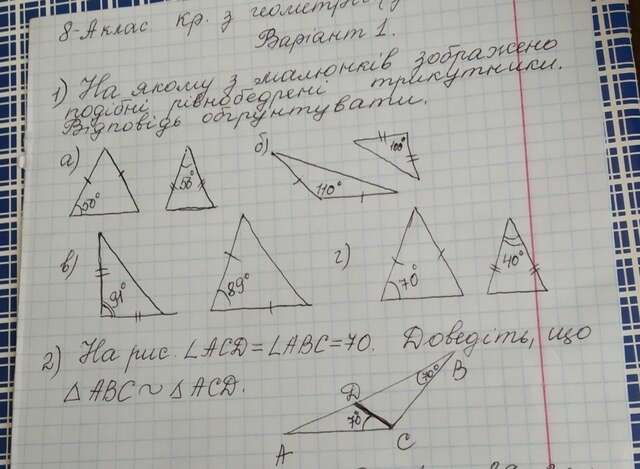 8-А клас Кр. з геометрії
Варіант 1.
1) На якому з малюнків зображено
подібні рівнобедрені трикутники.
Відповідь обгрунтувати.
а) 50° 50° б) 110° 100°
в) 91° 89° г) 70° 40°
2) На рис. ∠ACD=∠ABC=70. Доведіть, що
△ABC ~ △ACD.
70° B
D
70°
A C